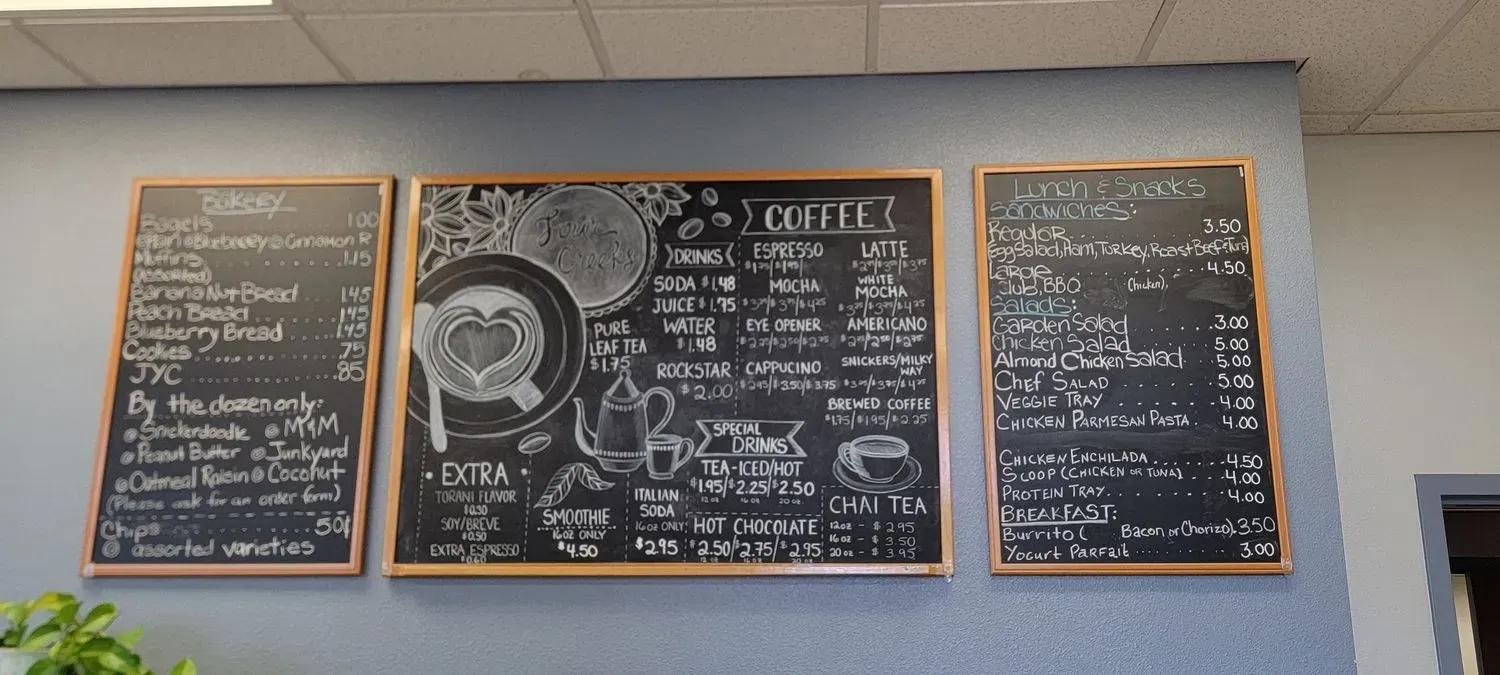 Bakery
Bagels 1.00
Plain Blueberry Cinnamon R
Muffins 1.15
(assorted)
Banana Nut Bread 1.45
Peach Bread 1.45
Blueberry Bread 1.45
Cookies ...... .75
JYC .......... .85
By the dozen only:
Snickerdoodle M&M
Peanut Butter Junkyard
Oatmeal Raisin Coconut
(Please ask for an order form)
Chips ........ 50¢
assorted varieties
Four Creeks
DRINKS
SODA $1.48
JUICE $1.75
WATER
$1.48
PURE
LEAF TEA
$1.75
ROCKSTAR
$2.00
COFFEE
ESPRESSO
LATTE
MOCHA
WHITE
MOCHA
EYE OPENER
AMERICANO
CAPPUCINO
$2.95/$3.50/$3.75
SNICKERS/MILKY
WAY
BREWED COFFEE
$1.75/$1.95/$2.25
SPECIAL
DRINKS
TEA-ICED/HOT
$1.95/$2.25/$2.50
12 oz 16 oz 20 oz
EXTRA
TORANI FLAVOR
$0.30
SOY/BREVE
$0.50
EXTRA ESPRESSO
$0.60
SMOOTHIE
16oz ONLY
$4.50
ITALIAN
SODA
16oz ONLY
$2.95
HOT CHOCOLATE
$2.50/$2.75/$2.95
12 oz 16 oz 20 oz
CHAI TEA
12oz - $2.95
16oz - $3.50
20oz - $3.95
Lunch & Snacks
Sandwiches:
Regular 3.50
Egg Salad, Ham, Turkey, Roast Beef, Tuna
Large ....... 4.50
Club, BBQ (Chicken),
Salads:
Garden Salad ...... 3.00
Chicken Salad ..... 5.00
Almond Chicken Salad . 5.00
Chef Salad ..... 5.00
Veggie Tray ..... 4.00
Chicken Parmesan Pasta . 4.00
Chicken Enchilada ...... 4.50
Scoop (Chicken or Tuna) .... 4.00
Protein Tray ...... 4.00
Breakfast:
Burrito ( Bacon or Chorizo). 3.50
Yogurt Parfait ........ 3.00